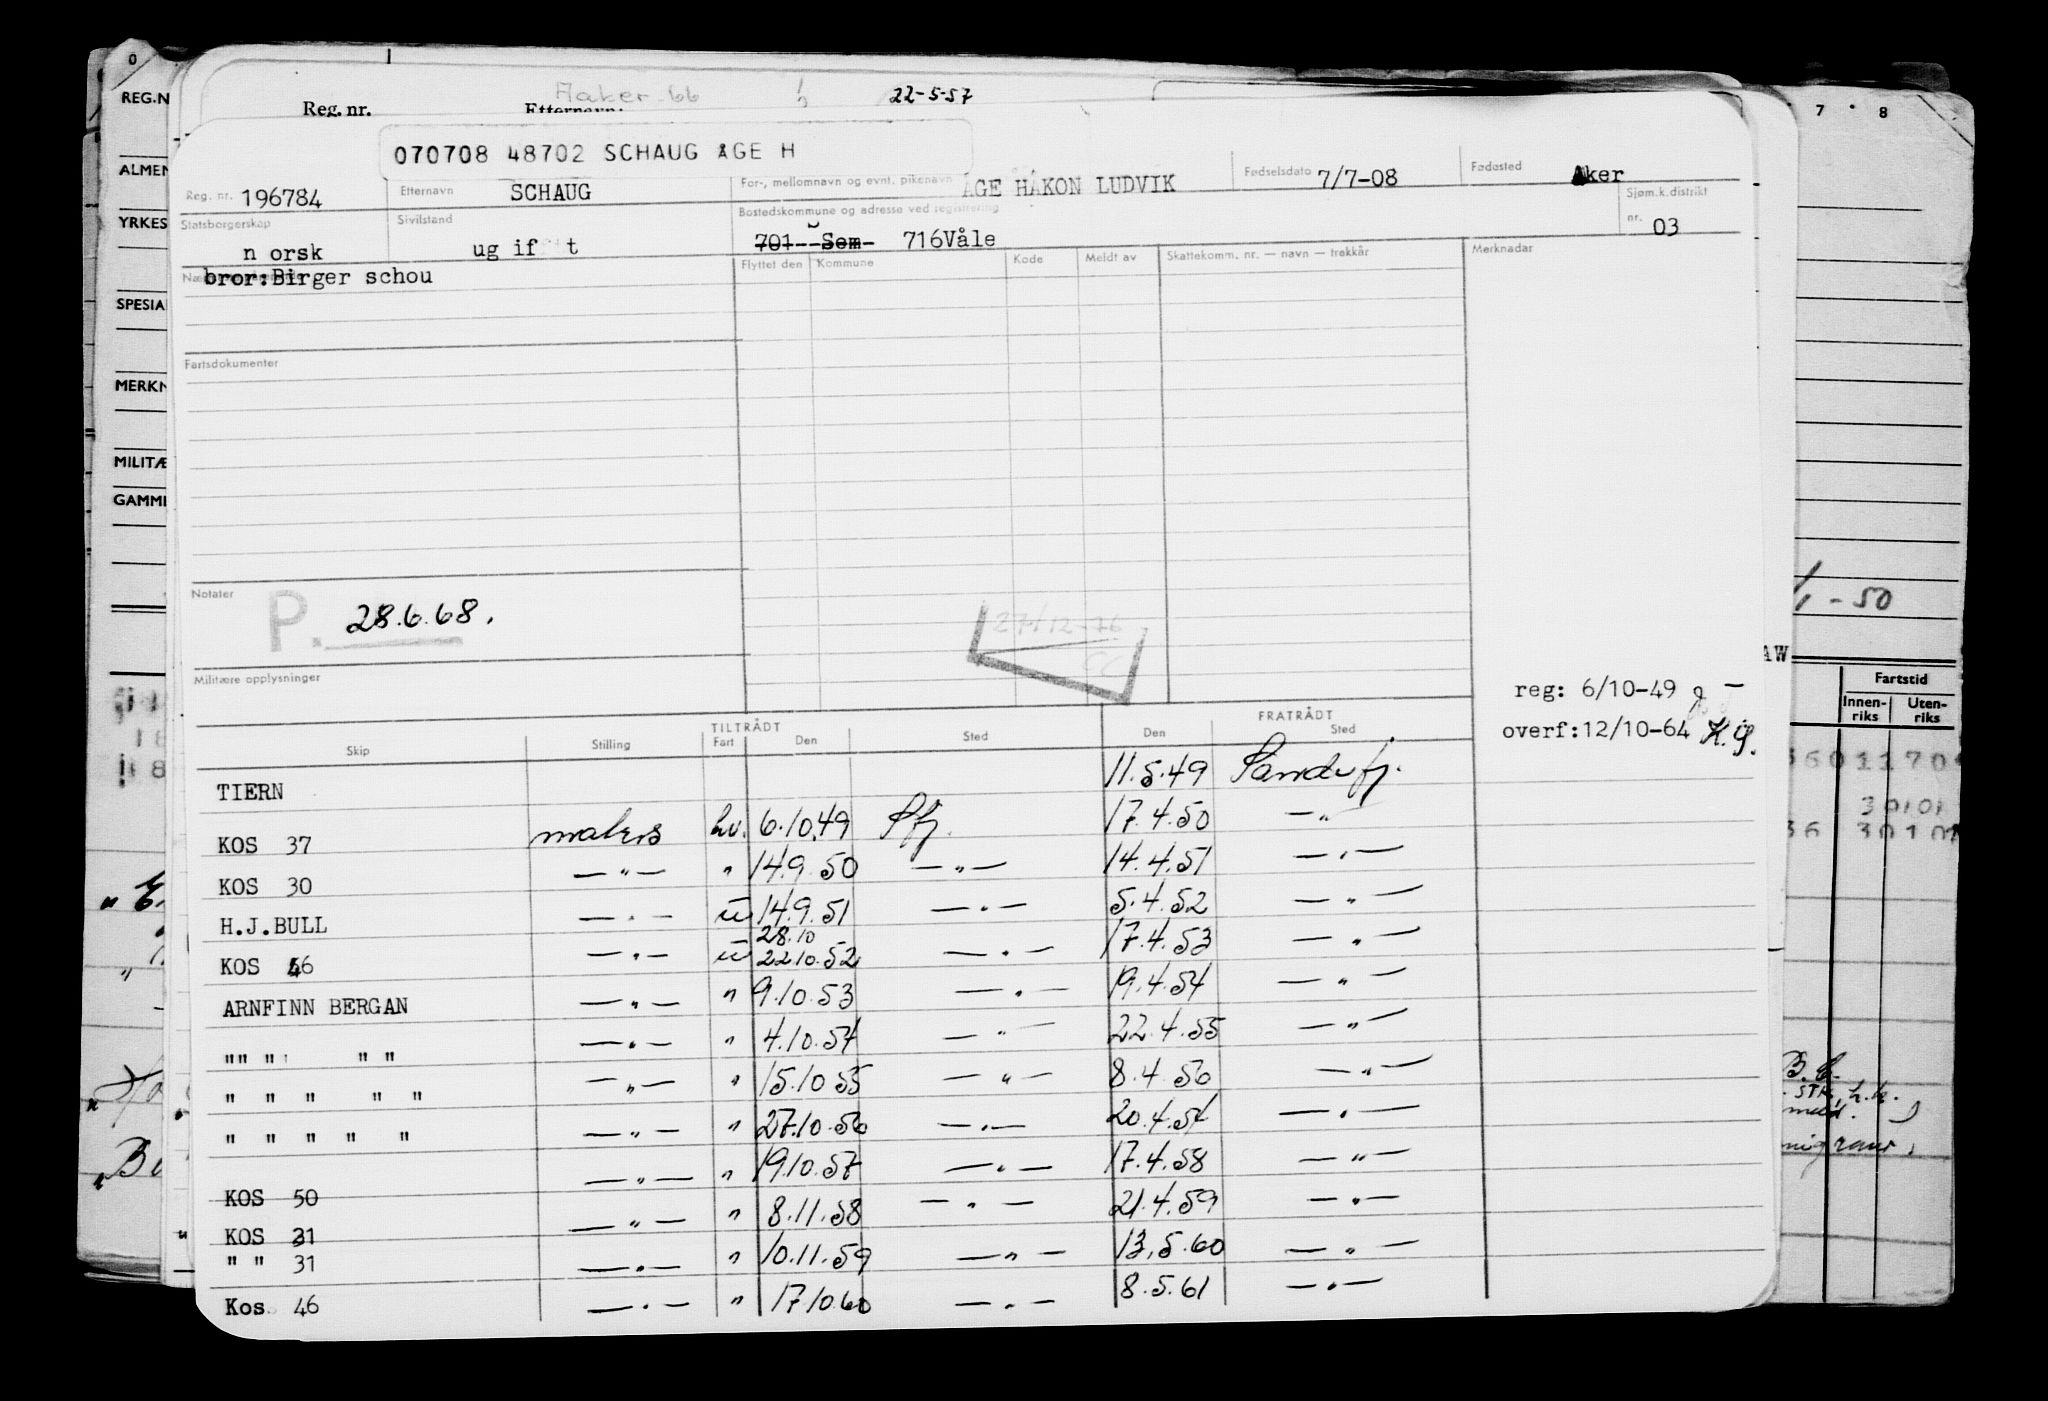 0
REG.N
Reg. nr. Etternavn: 22-5-57
7 8
070708 48702 SCHAUG ÅGE H
ALMEN
Reg. nr. 196784 Etternavn SCHAUG For-, mellomnavn og evnt. pikenavn ÅGE HÅKON LUDVIK Fødselsdato 7/7-08 Fødested Aker
YRKES
Statsborgerskap n orsk Sivilstand ug if t Bostedskommune og adresse ved registrering 701--Sem- 716Våle Sjøm.k.distrikt nr. 03
bror:Birger schou
Flyttet den Kommune Kode Meldt av Skattekomm. nr. — navn — trekkår Merknadar
SPESIA
Fartsdokumenter
MERKN
MILITÆ
GAMML
Notater P. 28.6.68.
27/12-76
- 50
Militære opplysninger
AW
Fartstid
Innen-riks Uten-riks
reg: 6/10-49
overf:12/10-64 K.G.
TILTRÅDT FRATRÅDT
Skip Stilling Fart Den Sted Den Sted
TIERN 11.5.49 Sandefj.
KOS 37 matros hv. 6.10.49 Sfj. 17.4.50 —"—
KOS 30 —"— " 14.9.50 —"— 14.4.51 —"—
H.J.BULL —"— u 14.9.51 —"— 5.4.52 —"—
28.10
KOS 46 —"— u 22.10.52 —"— 17.4.53 —"—
ARNFINN BERGAN —"— " 9.10.53 —"— 19.4.54 —"—
"" " " " —"— " 4.10.54 —"— 22.4.55 —"—
" " " " " —"— " 15.10 55 —"— 8.4.56 —"—
" " " " " —"— " 27.10.56 —"— 20.4.57 —"—
KOS 50 —"— " 19.10.57 —"— 17.4.58 —"—
KOS 31 —"— " 8.11.58 —"— 21.4.59 —"—
" " 31 —"— " 10.11.59 —"— 13.5.60 —"—
Kos. 46 —"— " 17.10.60 —"— 8.5.61 —"—